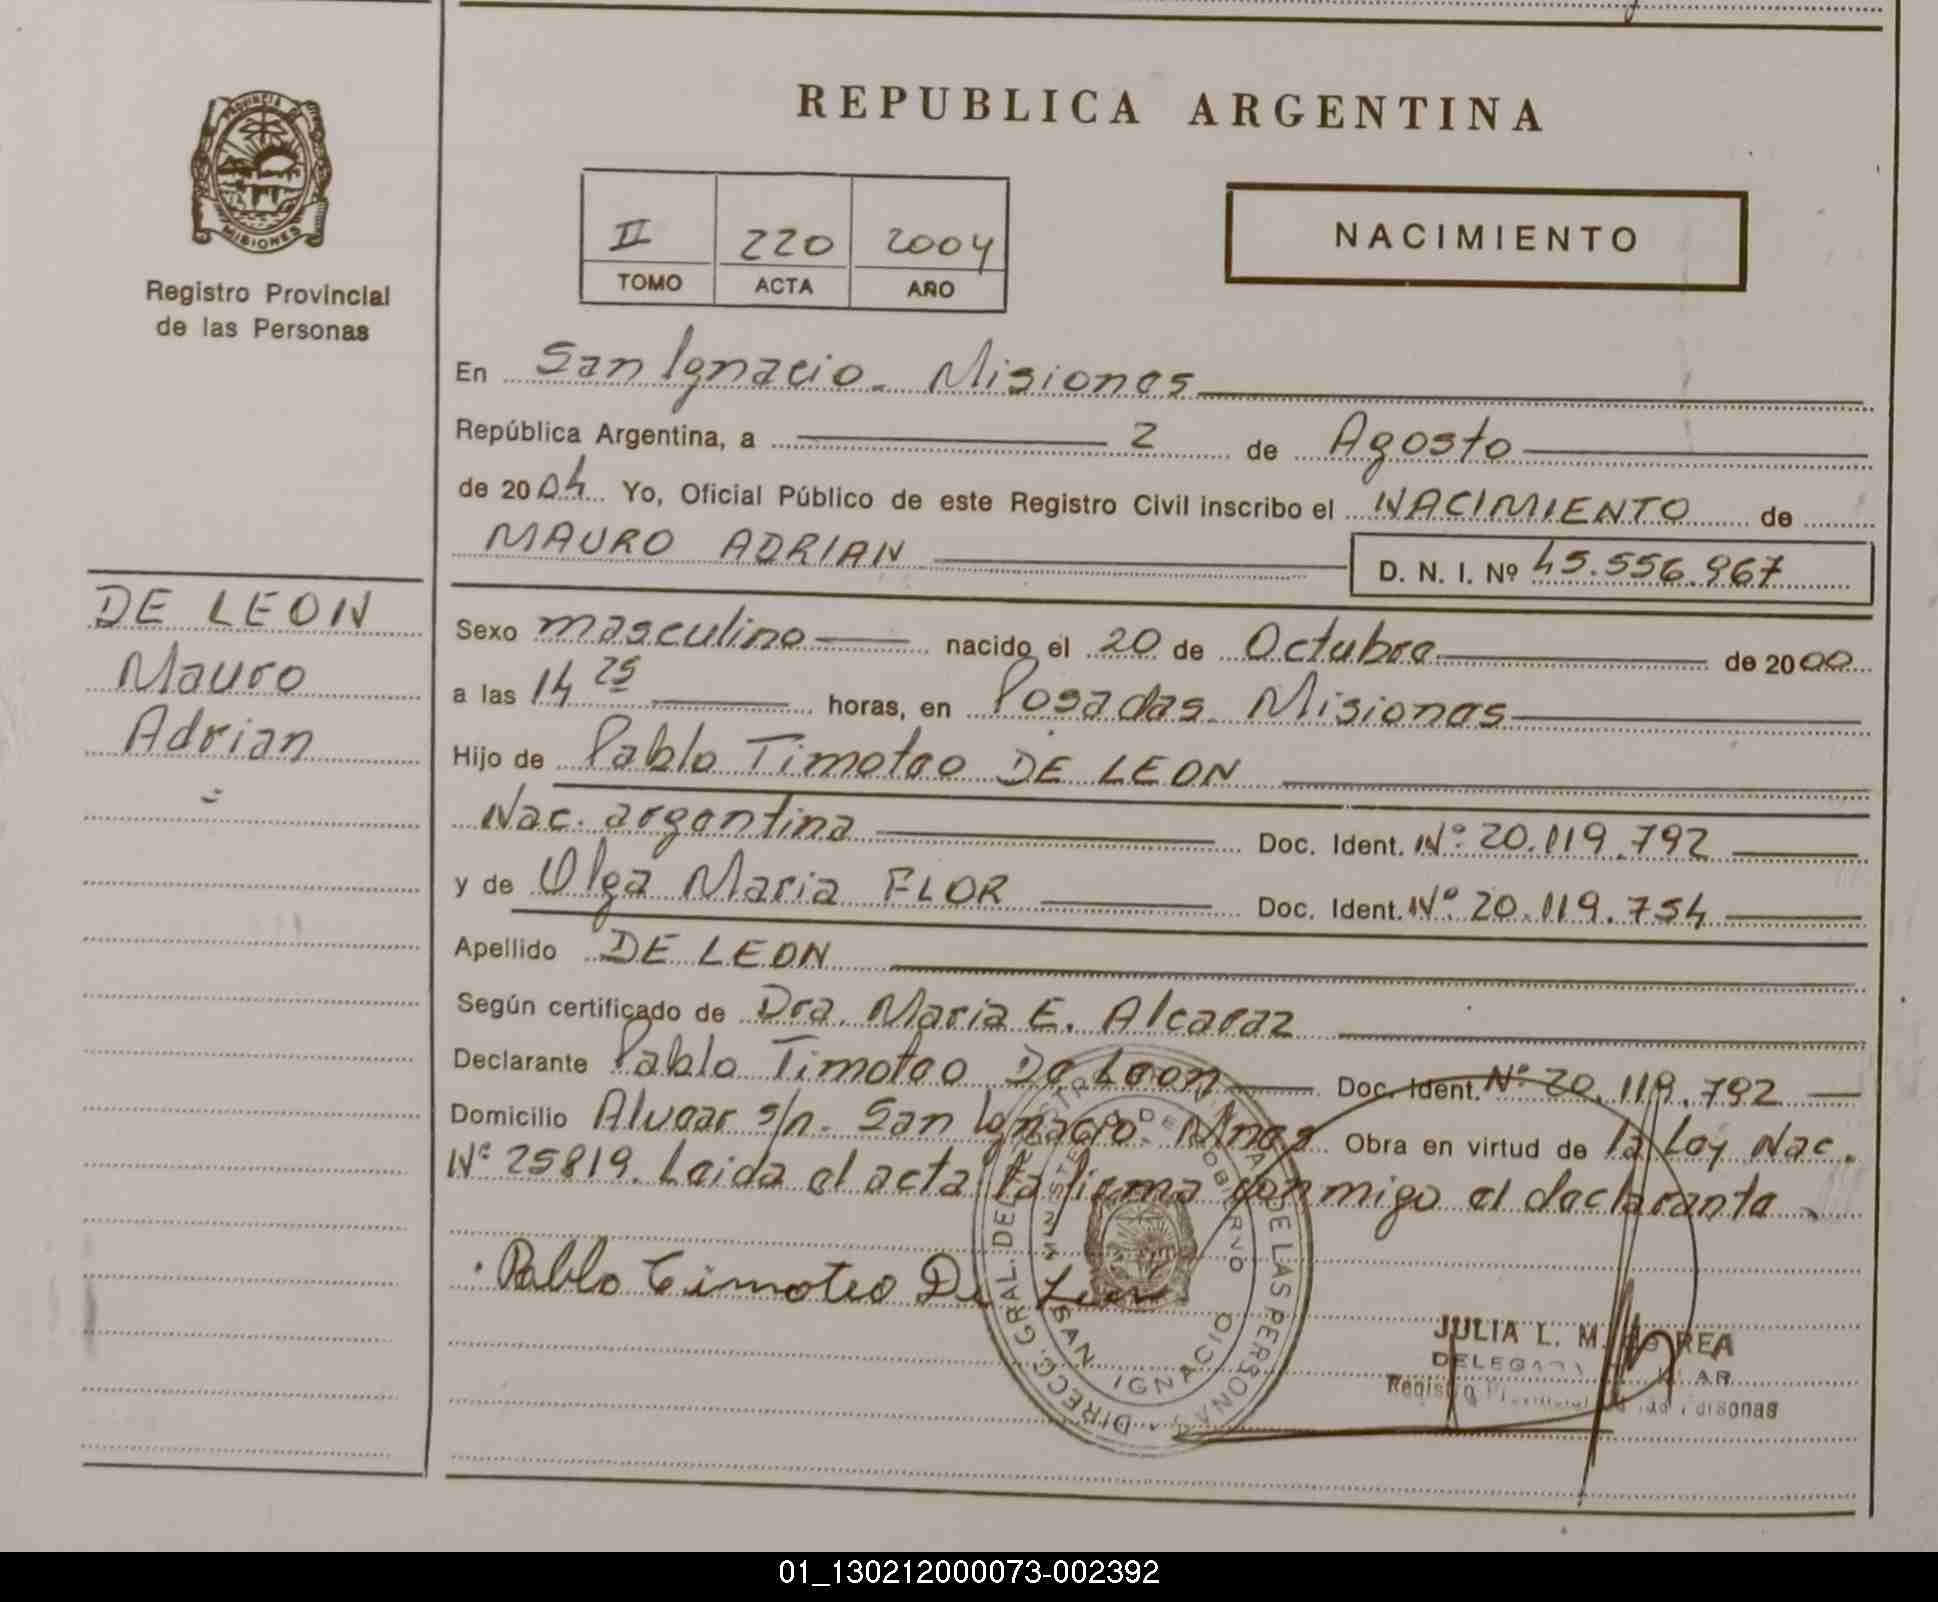 PROVINCIA DE MISIONES
Registro Provincial
de las Personas
REPUBLICA ARGENTINA
II 220 2004
TOMO ACTA AÑO
NACIMIENTO
En San Ignacio. Misiones
República Argentina, a 2 de Agosto
de 2004 Yo, Oficial Público de este Registro Civil inscribo el NACIMIENTO de
MAURO ADRIAN D. N. I. Nº 45.556.967
DE LEON
Mauro
Adrian
Sexo masculino nacido el 20 de Octubre de 2000
a las 14 25 horas, en Posadas. Misiones
Hijo de Pablo Timoteo DE LEON
Nac. argentina Doc. Ident. Nº 20.119.792
y de Olga Maria FLOR Doc. Ident. Nº 20.119.754
Apellido DE LEON
Según certificado de Dra. Maria E. Alcaraz
Declarante Pablo Timoteo De Leon Doc. Ident. Nº 20.119.792
Domicilio Alvear s/n. San Ignacio. Mnes Obra en virtud de la Ley Nac.
Nº 25819. Leida el acta la firma conmigo el declarante
Pablo Timoteo De Leon
DIRECC. GRAL. DEL REGISTRO PROVINCIAL DE LAS PERSONAS
MINISTERIO DE GOBIERNO
SAN IGNACIO
JULIA L. M.
Registro Personas
01_130212000073-002392